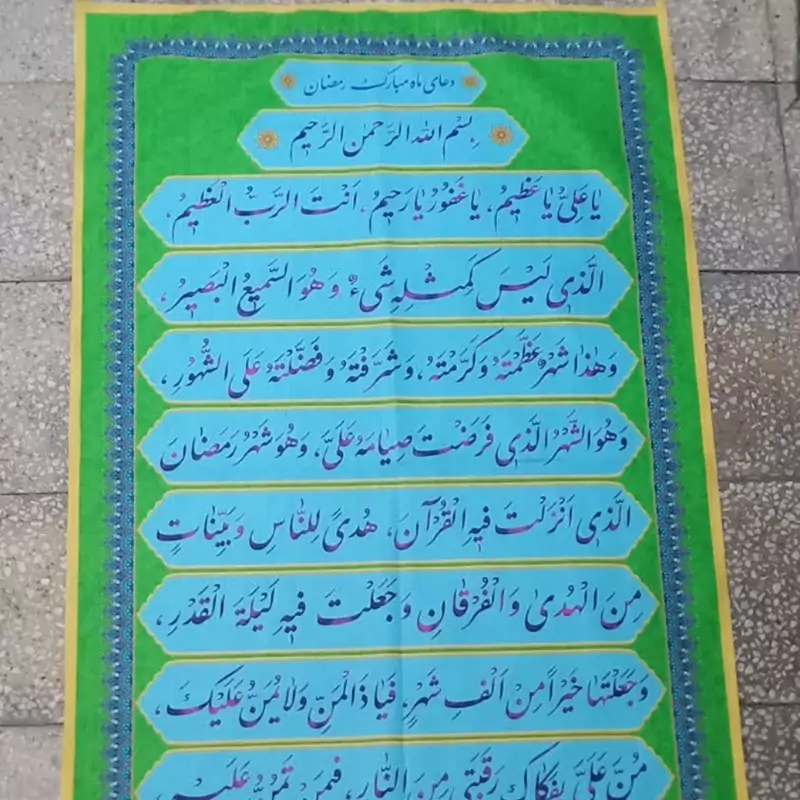 دعای ماه مبارک رمضان
بِسْمِ اللهِ الرَّحْمنِ الرَّحیمِ
یا عَلِیُّ یا عَظیمُ، یا غَفُورُ یا رَحیمُ، اَنْتَ الرَّبُّ الْعَظیمُ،
الَّذی لَیْسَ کَمِثْلِهِ شَیْءٌ وَ هُوَ السَّمیعُ الْبَصیرُ،
وَ هٰذا شَهْرٌ عَظَّمْتَهُ وَ کَرَّمْتَهُ، وَ شَرَّفْتَهُ وَ فَضَّلْتَهُ عَلَی الشُّهُورِ،
وَ هُوَ الشَّهْرُ الَّذی فَرَضْتَ صِیامَهُ عَلَیَّ، وَ هُوَ شَهْرُ رَمَضانَ
الَّذی اَنْزَلْتَ فیهِ الْقُرْآنَ، هُدیً لِلنّاسِ وَ بَیِّناتٍ
مِنَ الْهُدیٰ وَ الْفُرْقانِ وَ جَعَلْتَ فیهِ لَیْلَةَ الْقَدْرِ،
وَ جَعَلْتَها خَیْراً مِنْ اَلْفِ شَهْرٍ، فَیا ذَا الْمَنِّ وَ لا یُمَنُّ عَلَیْکَ،
مُنَّ عَلَیَّ بِفَکاکِ رَقَبَتی مِنَ النّارِ، فیمَنْ تَمُنُّ عَلَیْهِ